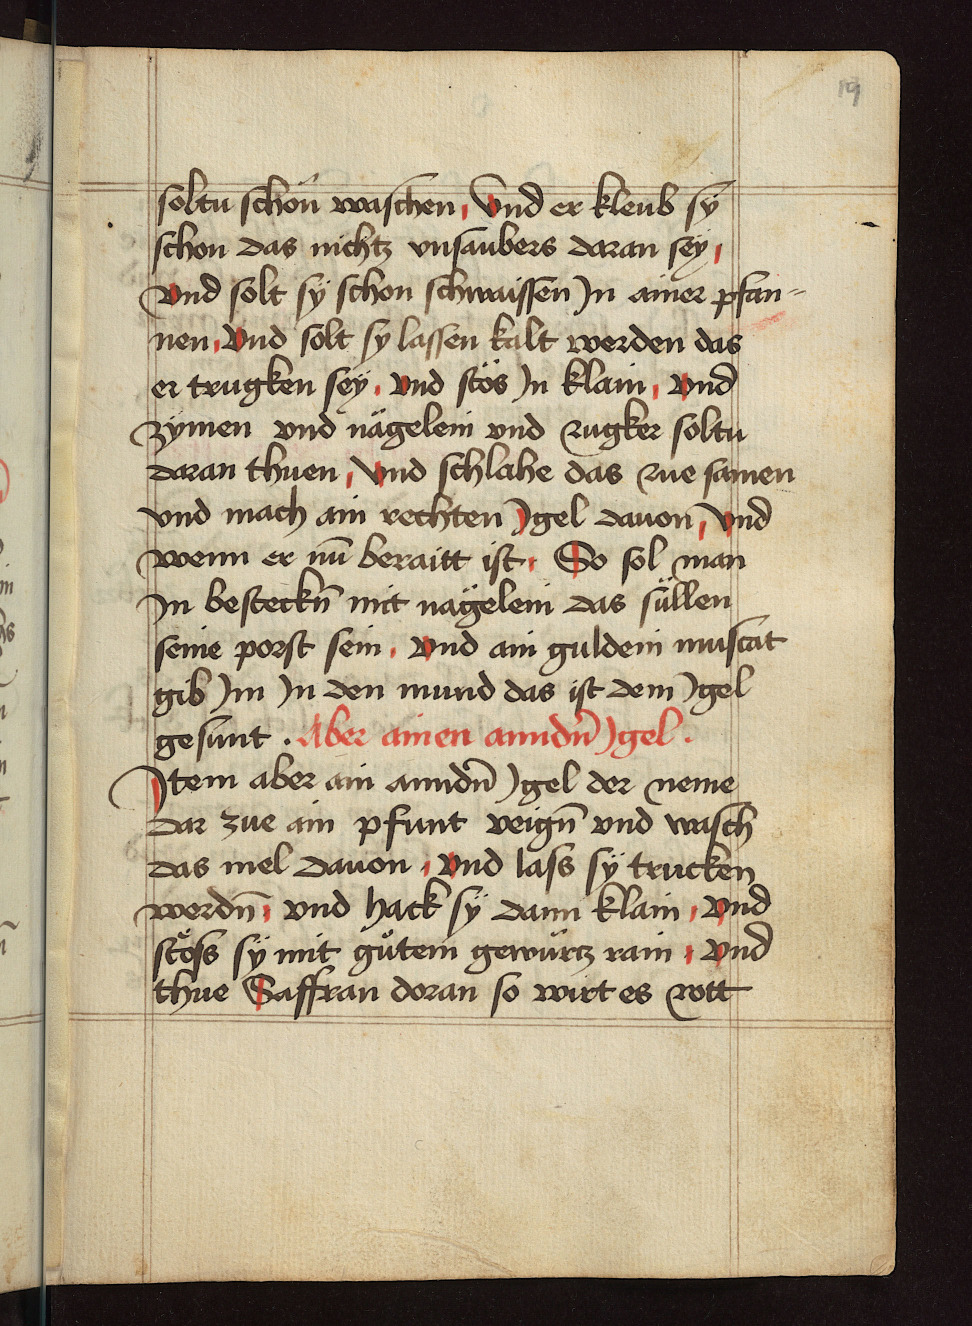 19
soltu schön waschen, Und er kleub sÿ
schon das nichtz vnsaubers daran seÿ,
Vnd solt sÿ schon schwaissen Jn ainer pfan-
nen, Vnd solt sy lassen kalt werden das
er trugken seÿ, vnd stös Jn klain, vnd
zÿmen vnd nägelein vnd zugker soltu
daran thuen, Vnd schlahe das zue samen
vnd mach ain rechten Jgel dauon, vnd
wenn er nu̅ beraitt ist, So sol man
Jn besteckn̄ mit nägelein das süllen
seine porst sein, Vnd ain guldein muscat
gib Jm Jn den mund das ist dem Jgel
gesunt . Aber ainen annd̄n Jgel .
Jtem aber ain annd̄n Jgel der neme
dar zue ain pfunt veign̄ vnd wasch
das mel dauon, Vnd lass sÿ trucken
werdn̄, vnd hack sÿ dann klain, Vnd
stöss sÿ mit gůtem gewürtz rain, Vnd
thue Saffran doran so wirt es rott